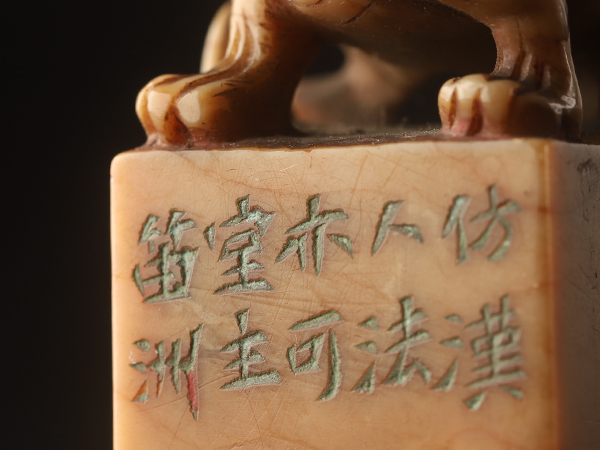 仿漢
人法
亦可
室主
笛洲